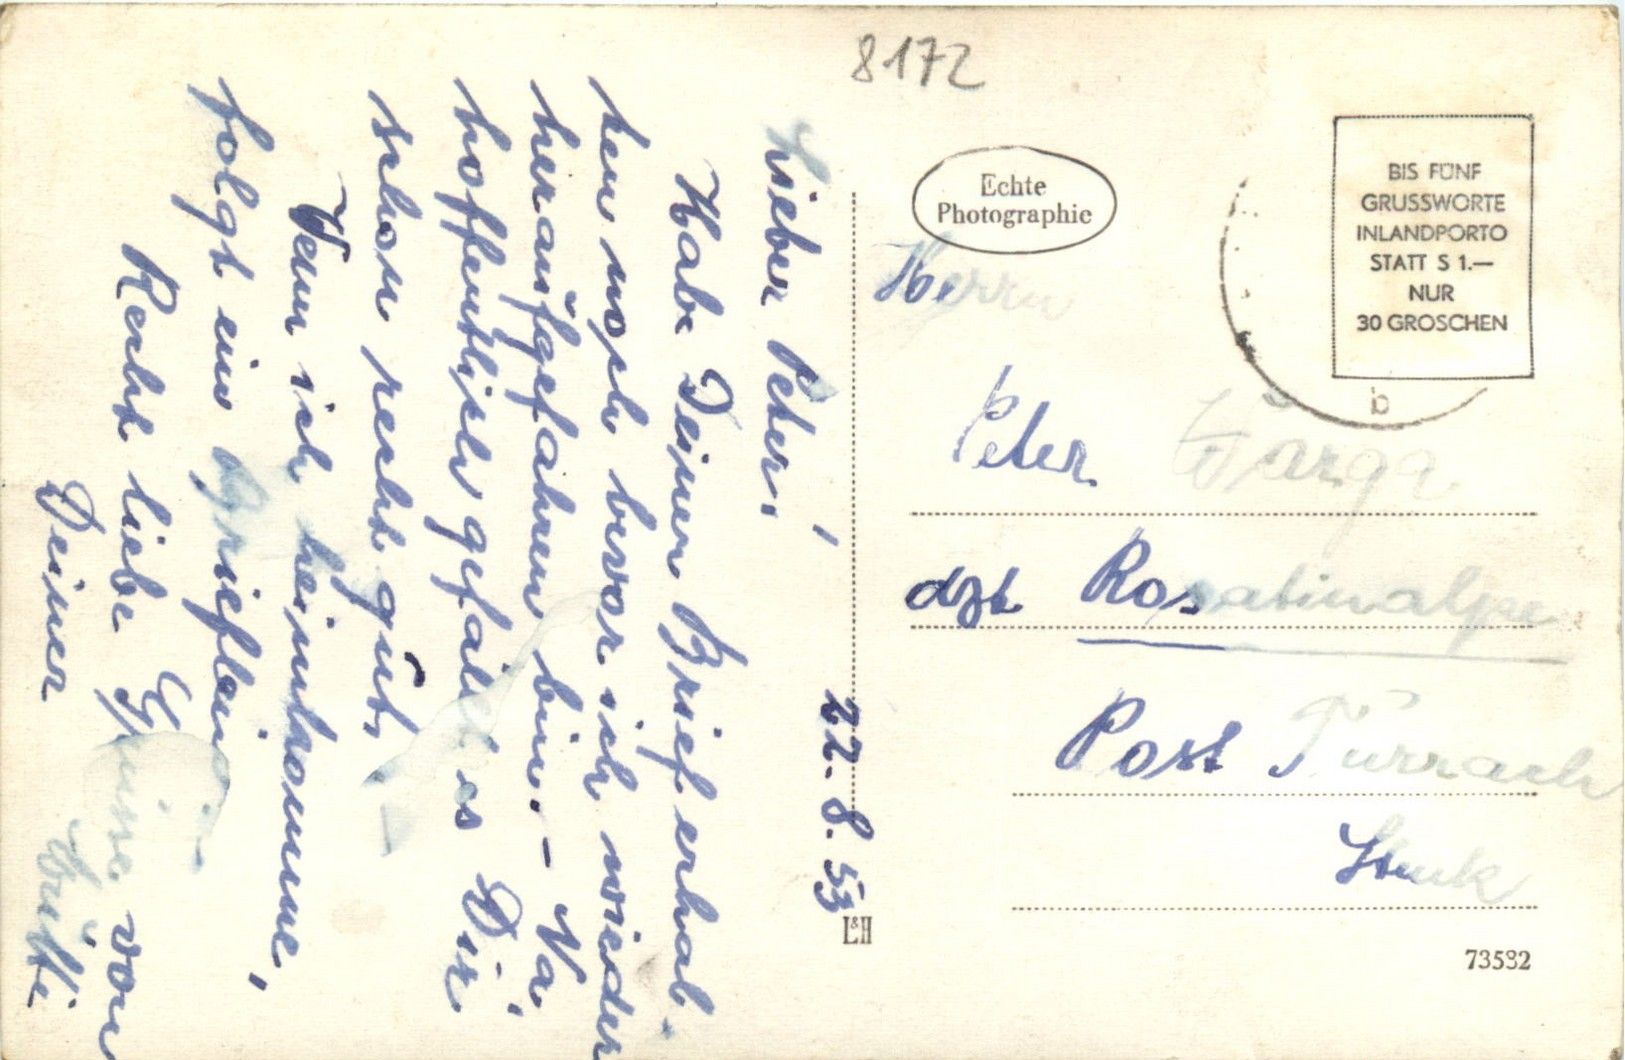 8172
22. 8. 53
Lieber Peter,
Habe Deinen Brief erhal-
ten noch bevor ich wieder
heraufgefahren bin. – Na,
hoffentlich gefällt es Dir
schon recht gut.
Wenn ich heimkomme,
folgt ein Brieflein
Recht liebe Grüsse von
Deiner
Echte
Photographie
BIS FÜNF
GRUSSWORTE
INLANDPORTO
STATT S 1.—
NUR
30 GROSCHEN
b
Herrn
Peter Varga
dzt Rosatinalpe
Post Turrach
L&H
73532